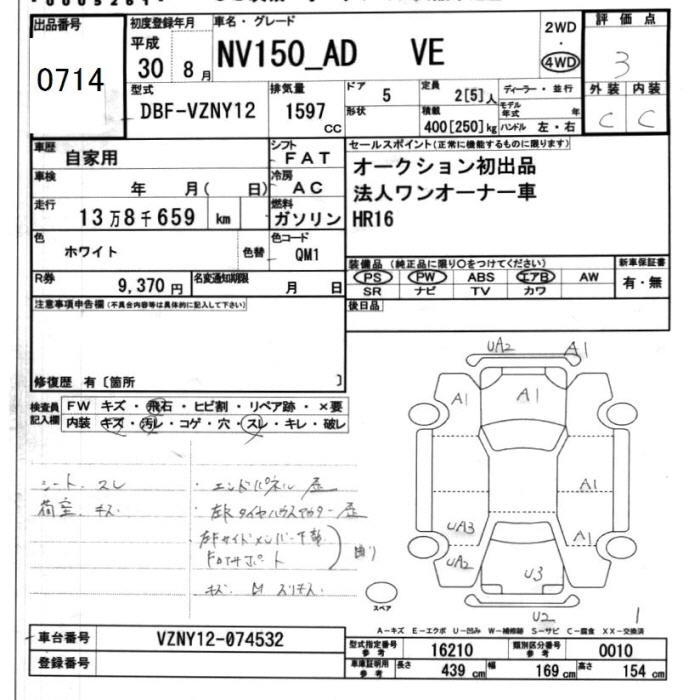 出品番号
0714
初度登録年月
平成
30 8月
車名・グレード
NV150_AD VE
2WD
・
4WD
評価点
3
外装 内装
C C
型式
DBF-VZNY12
排気量
1597
CC
ドア 5
形状
定員 2[5]人
積載 400[250]kg
ディーラー・並行
モデル年式 年
ハンドル 左・右
車歴 自家用
シフト FAT
車検 年 月( 日)
冷房 AC
走行 13万8千659 km
燃料 ガソリン
色 ホワイト 色替
色コード QM1
R券 9,370円
名変通知期限 月 日
セールスポイント(正常に機能するものに限ります)
オークション初出品
法人ワンオーナー車
HR16
装備品 (純正品に限り○をつけてください)
PS PW ABS エアB AW
SR ナビ TV カワ
新車保証書
有・無
後日品
注意事項申告欄(不具合内容等は具体的に記入して下さい)
修復歴 有〔箇所 〕
検査員記入欄
FW キズ・飛石・ヒビ割・リペア跡・×要
内装 キズ・汚レ・コゲ・穴・スレ・キレ・破レ
シート スレ
荷室 キズ
・エンドパネル
・左R タイヤハウスアウター
左Fサイドメンバー下部
曲り
UA2 A1
A1 A1
A1
UA3 A1
UA2 U3
U2 1
スペア
A−キズ E−エクボ U−凹み W−補修跡 S−サビ C−腐食 XX−交換済
車台番号 VZNY12-074532
登録番号
型式指定番号参考 16210
類別区分番号参考 0010
車庫証明用参考 長さ 439cm 幅 169cm 高さ 154cm